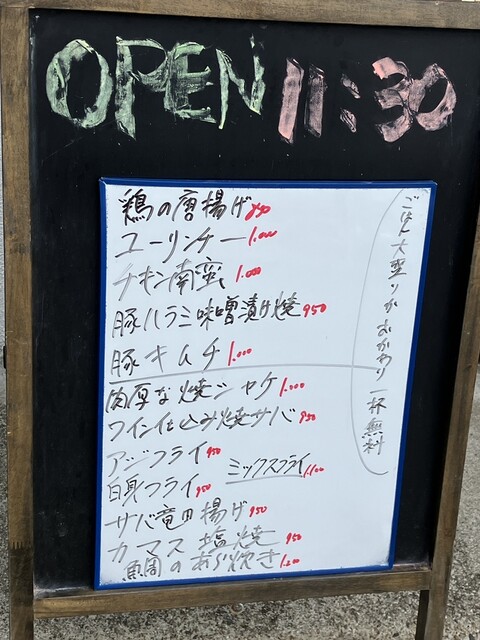 OPEN 11:30
鶏の唐揚げ
ユーリンチー 1.000
チキン南蛮 1.000
豚ハラミ味噌漬け焼 950
豚キムチ 1.000
肉厚な焼シャケ 1.000
ワイン仕込み焼サバ 950
アジフライ 950
ミックスフライ 1.100
白身フライ 950
サバ竜田揚げ 950
カマス塩焼 950
鯛のあら炊き 1.200
ごはん大盛りかおかわり一杯無料